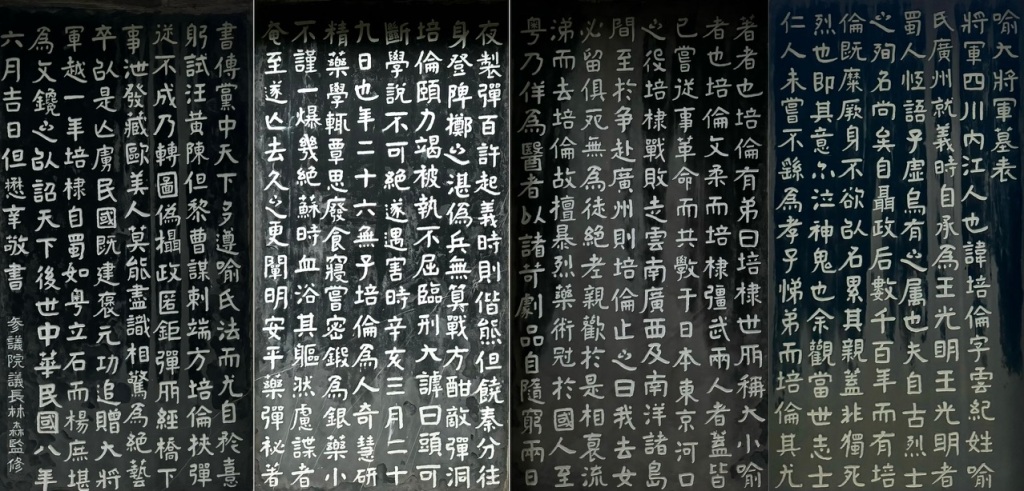 喻大將軍墓表
將軍四川內江人也諱培倫字雲紀姓喻
氏廣州就義時自承為王光明王光明者
蜀人恆語子虛烏有之属也夫自古烈士
之殉名尚矣自聶政后數千百年而有培
倫既縻厥身不欲以名累其親蓋非獨死
烈也即其意尒泣神鬼也余觀當世志士
仁人未嘗不繇為孝子悌弟而培倫其尤
著者也培倫有弟曰培棣世所稱大小喻
者也培倫文柔而培棣彊武兩人者蓋皆
已嘗從事革命而共斅于日本東京河口
之役培棣戰敗走雲南廣西及南洋諸島
間至於爭赴廣州則培倫止之曰我去女
必留俱死無為徒絕老親歡於是相裹流
涕而去培倫故擅暴烈藥術冠於國人至
粵乃佯為醫者以諸計劇品自隨窮兩日
夜製彈百許起義時則偕熊但饒秦分往
身登陴擲之湛偽兵無算戰方酣敵彈洞
培倫頤力竭被執不屈臨刑大謼曰頭可
斷學說不可絕遂遇害時辛亥三月二十
九日也年二十六無子培倫為人奇慧研
精藥學輒覃思廢食寢嘗密鍛為銀藥小
不謹一爆幾絕蘇時血浴其軀然慮諜者
奄至遂亡去久之更闡明安平藥彈祕著
書傳黨中天下多遵喻氏法而尤自矜憙
躬試汪黃陳但黎曹謀刺端方培倫挾彈
從不成乃轉圖偽攝政匿鉅彈所經橋下
事泄發藏歐美人莫能盡識相驚為絕藝
卒以是亡虜民國既建褒元功追贈大將
軍越一年培棣自蜀如粵立石而楊庶堪
為文鑱之以詔天下後世中華民國八年
六月吉日但懋辛敬書
參議院議長林森監修